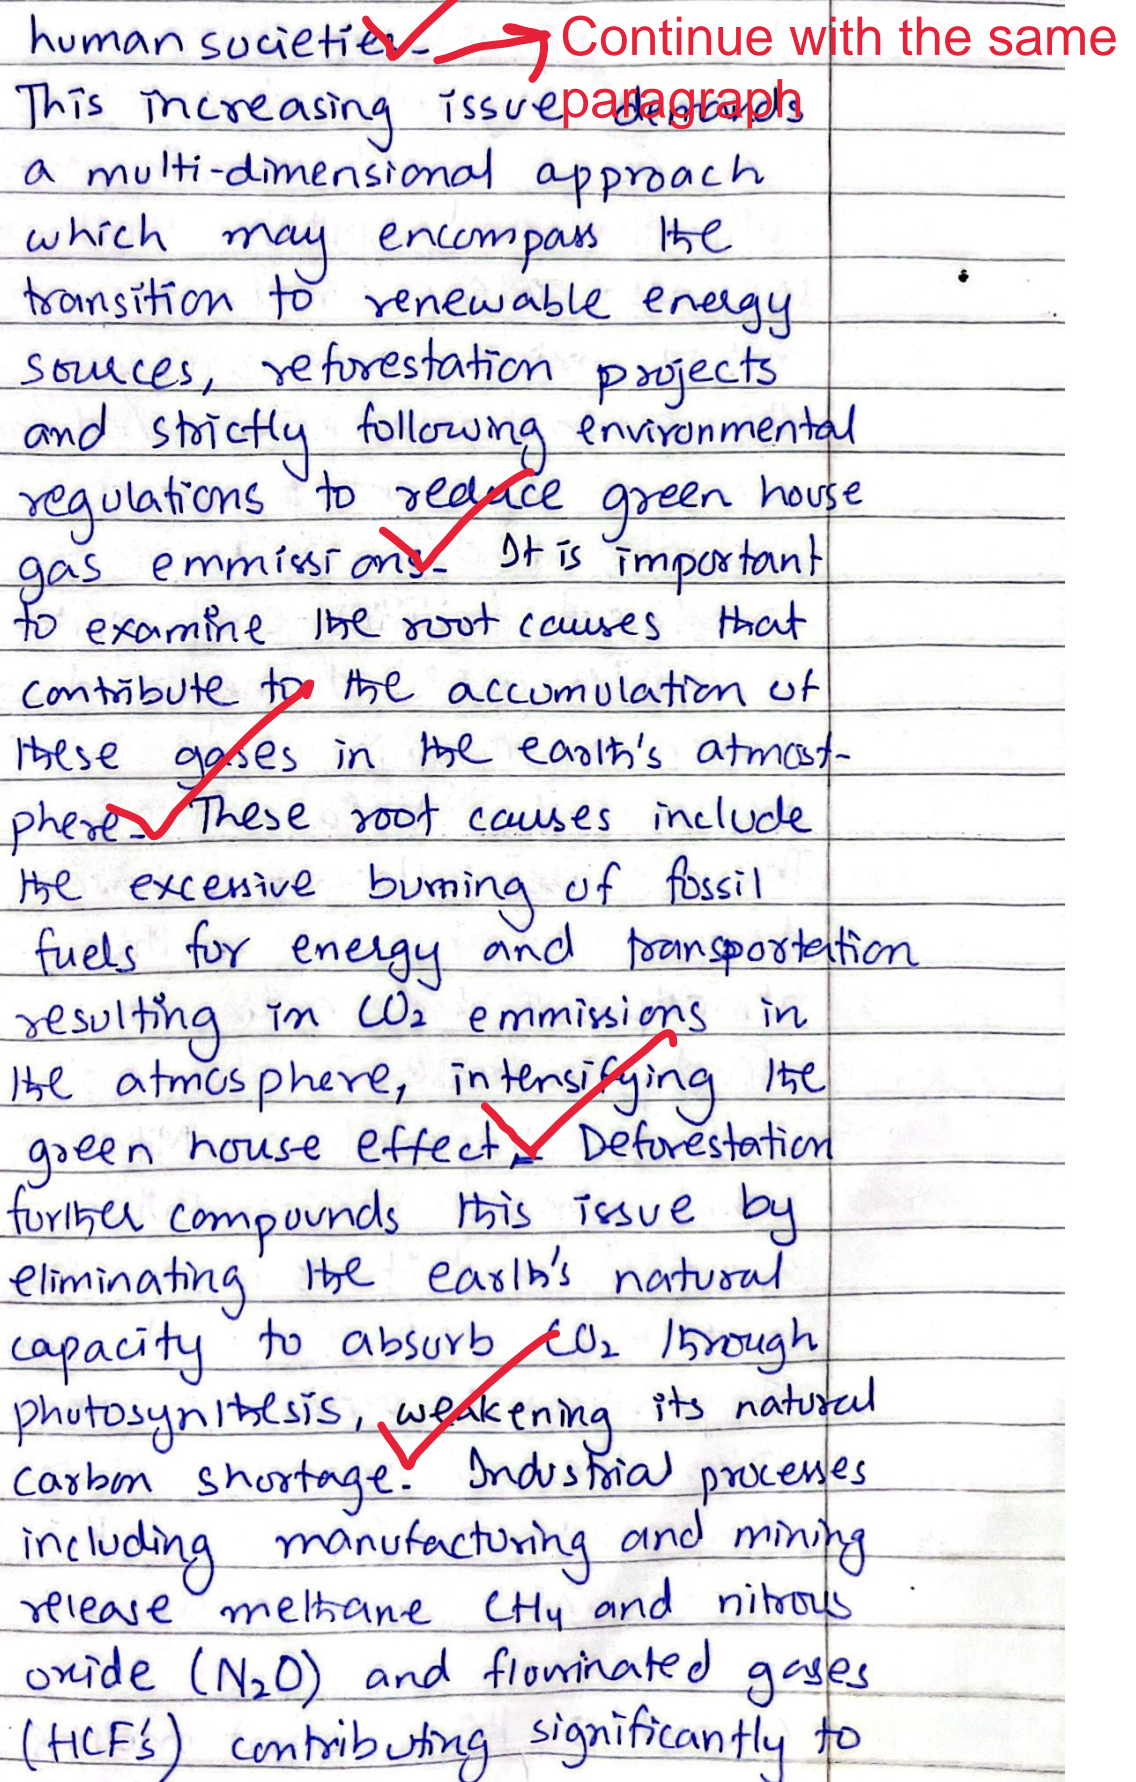 human societies.
Continue with the same
paragraph
This increasing issue demands
a multi-dimensional approach
which may encompass the
transition to renewable energy
sources, reforestation projects
and strictly following environmental
regulations to reduce green house
gas emmissions. It is important
to examine the root causes that
contribute to the accumulation of
these gases in the earth's atmost-
phere. These root causes include
the excessive burning of fossil
fuels for energy and transportation
resulting in CO2 emmissions in
the atmosphere, intensifying the
green house effect. Deforestation
further compounds this issue by
eliminating the earth's natural
capacity to absorb CO2 through
photosynthesis, weakening its natural
carbon shortage. Industrial processes
including manufacturing and mining
release methane CH4 and nitrous
oxide (N2O) and flourinated gases
(HCF's) contributing significantly to